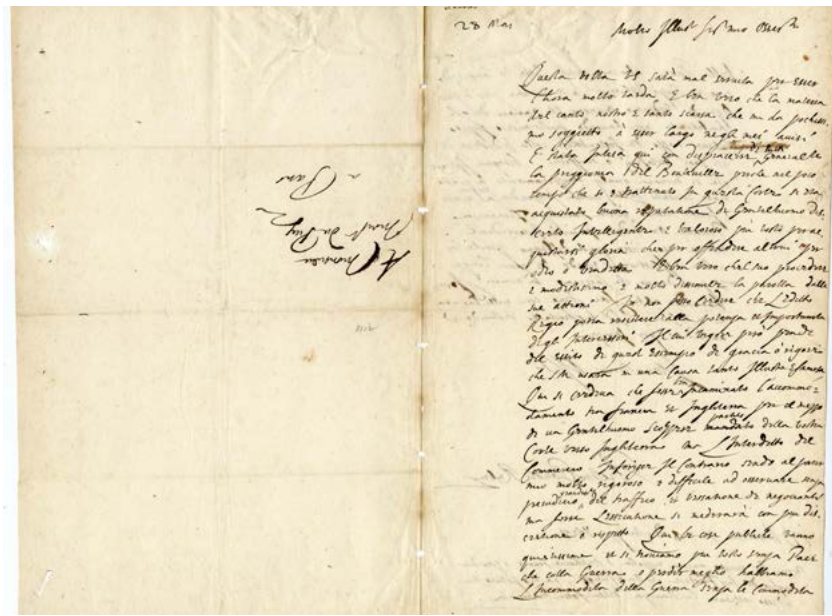 28 Mai
Molto Illustre Sigr mio Osservmo
Questa volta VS sarà mal servita per esser
l'hora molto tarda e ben vero che la materia
del canto nostro è tanto scarsa che mi da pochissi-
mo soggietto à esser largo negli miei avisi
E stata intesa qui con dispiacere generalle
la preggionia del Bouteville perche nel poco
tempo che si è trattenuto in questa Corte si era
acquistato buona reputatione di Gentilhuomo
valoroso più tosto per ac-
quistarsi gloria che per offendere altrui per
odio o vendetta E ben vero che'l suo procedere
è modestissimo e molto la parolla dalle
sue attioni Io non posso credere che l'editto
Regio possa resistere alla potenza et importunita
degli Intercessori Il cui vigore però pende
del exito di quest essempio di gracia ò rigore
che SM usara in una causa tanto Illustre e famosa
Qui si credeva che fosse incaminato l'accommo-
damento tra francia et Inghilterra per il mezzo
di un Gentilhuomo Scozzese mandato della vostra
Corte verso Inghilterra ma l'Interdetto del
Commercio Il Contrario sendo al parer
mio molto rigoroso e difficile ad osservare senza
preiudicio grandissimo del traffico et vexatione de negocianti
ma forse l'essecutione si moderarà con più dis-
cretione e rispetto Qui le cose publiche vanno
quietissime et si troviamo più tosto senza Pace
che colla Guerra o per dir meglio habbiamo
l'Incommodità della Guerra senza le Commodità
A Monsieur
Monsr du Puy
a Paris